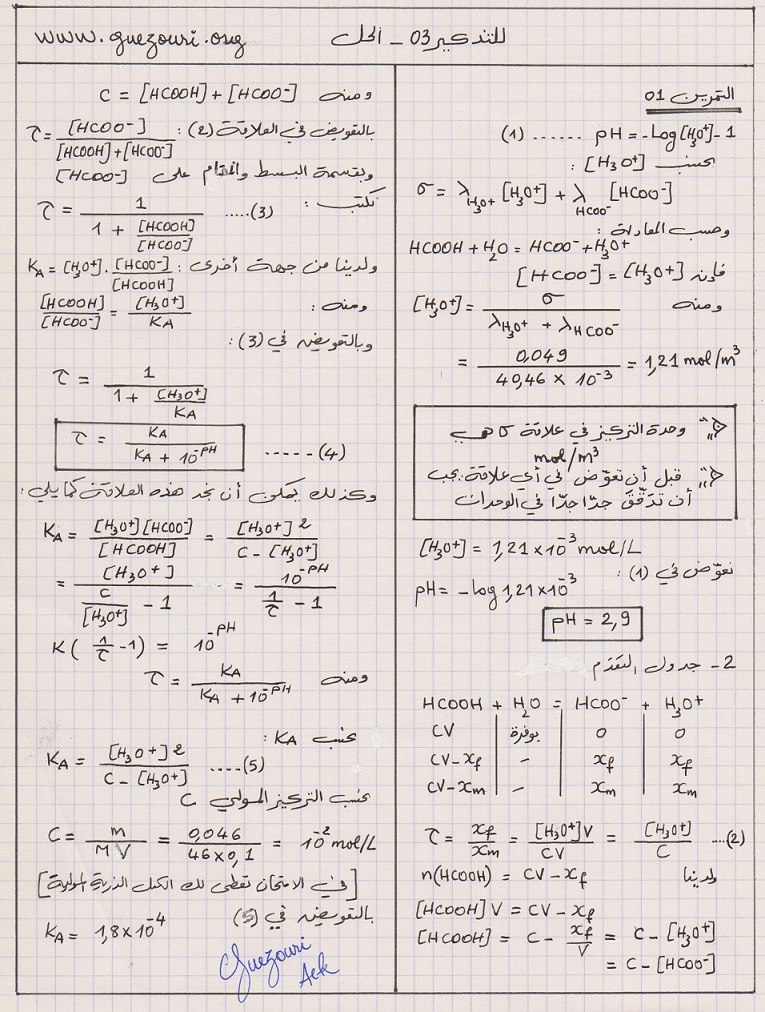 www.guezouri.org
للتذكير 03 - الحل
التمرين 01
1- pH = -Log[H₃O⁺] ...... (1)
نحسب [H₃O⁺] :
σ = λ_H₃O⁺ [H₃O⁺] + λ_HCOO⁻ [HCOO⁻]
وحسب المعادلة :
HCOOH + H₂O = HCOO⁻ + H₃O⁺
فإن [HCOO⁻] = [H₃O⁺]
ومنه [H₃O⁺] = σ / (λ_H₃O⁺ + λ_HCOO⁻)
= 0,049 / (40,46 × 10⁻³) = 1,21 mol/m³
وحدة التركيز في علاقة كا هي
mol/m³
قبل أن تعوّض في أي علاقة يجب
أن تدقّق جدّا جدّا في الوحدات
[H₃O⁺] = 1,21 × 10⁻³ mol/L
نعوّض في (1) :
pH = -log 1,21 × 10⁻³
pH = 2,9
2- جدول التقدّم
HCOOH + H₂O = HCOO⁻ + H₃O⁺
CV | بوفرة | 0 | 0
CV-x_f | - | x_f | x_f
CV-x_m | - | x_m | x_m
τ = x_f / x_m = [H₃O⁺]V / CV = [H₃O⁺] / C ....(2)
ولدينا n(HCOOH) = CV - x_f
[HCOOH] V = CV - x_f
[HCOOH] = C - x_f / V = C - [H₃O⁺]
= C - [HCOO⁻]
ومنه C = [HCOOH] + [HCOO⁻]
بالتعويض في العلاقة (2) : τ = [HCOO⁻] / ([HCOOH] + [HCOO⁻])
وبقسمة البسط والمقام على [HCOO⁻]
نكتب : τ = 1 / (1 + [HCOOH] / [HCOO⁻]) .....(3)
ولدينا من جهة أخرى : K_A = [H₃O⁺] . [HCOO⁻] / [HCOOH]
ومنه : [HCOOH] / [HCOO⁻] = [H₃O⁺] / K_A
وبالتعويض في (3) :
τ = 1 / (1 + [H₃O⁺] / K_A)
τ = K_A / (K_A + 10⁻ᵖᴴ) ----- (4)
وكذلك يمكن أن نجد هذه العلاقة كما يلي :
K_A = [H₃O⁺][HCOO⁻] / [HCOOH] = [H₃O⁺]² / (C - [H₃O⁺])
= [H₃O⁺] / (C / [H₃O⁺] - 1) = 10⁻ᵖᴴ / (1/τ - 1)
K (1/τ - 1) = 10⁻ᵖᴴ
ومنه τ = K_A / (K_A + 10⁻ᵖᴴ)
نحسب K_A :
K_A = [H₃O⁺]² / (C - [H₃O⁺]) ....(5)
نحسب التركيز المولي C
C = m / MV = 0,046 / (46 × 0,1) = 10⁻² mol/L
[في الامتحان تعطى لك الكتل الذرية المولية]
بالتعويض في (5)
K_A = 1,8 × 10⁻⁴
Guezouri
Aek